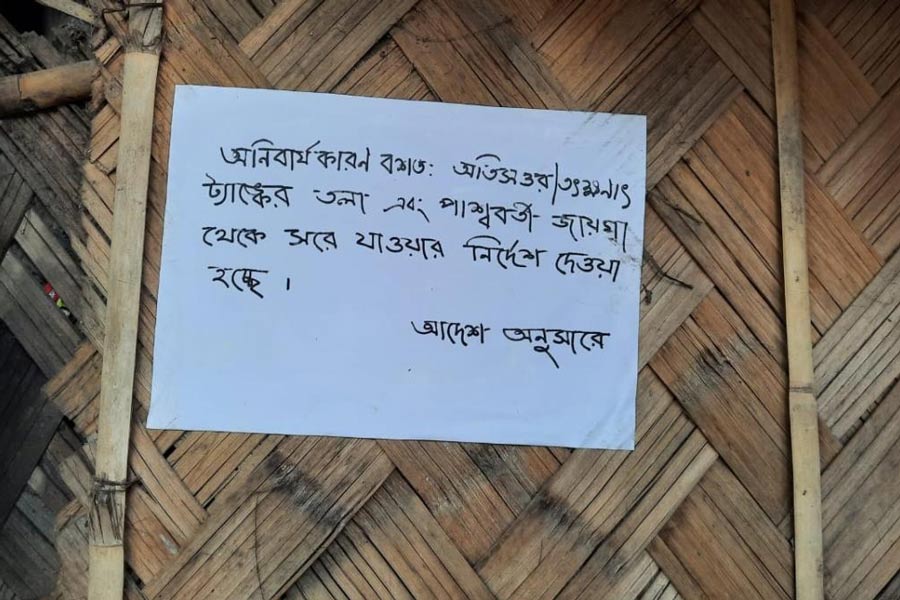 অনিবার্য কারণ বশত: অতিসত্তর/তৎক্ষনাৎ
ট্যাঙ্কের তলা এবং পার্শ্ববর্তী জায়গা
থেকে সরে যাওয়ার নির্দেশ দেওয়া
হচ্ছে ।
আদেশ অনুসারে